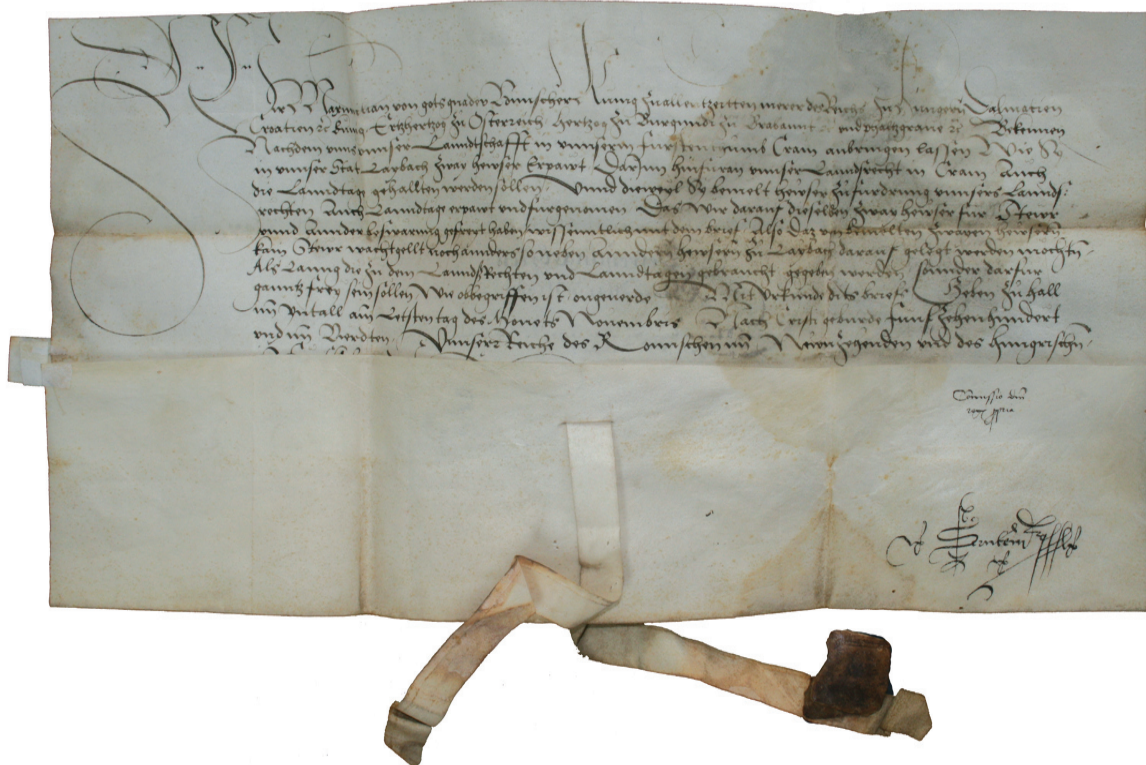 Wir Maximilian von gots gnaden Römischer Kunig zu allentzeitten merer des Reichs zu Hungern Dalmatien
Croatien &c Kunig Ertzhertzog zu Osterreich Hertzog zu Burgundi zu Brabannt &c und phaltzgrave &c Bekennen
Nachdem unns unnser Lanndtschafft in unnserm furstenthumb Crain anbringen lassen Wie Sy
in unnser Stat Laybach zway hewser Erpawt Darinn hinfuran unnser Lanndsrecht in Crain Auch
die Lanndtag gehallten werden sollen Unnd dieweyl Sy bemelt hewser zu furdrung unnsers Lannds
rechten Auch Lanndtags erpawt und furgenomen Das wir daraus dieselben zway hewser fur Stewr
unnd annder beswarung gefreyt haben wissenntlich mit dem brief Also daz von bemellten zwayen hewsern
kain Stewr wachtgellt noch annders so neben anndern hewsern zu Laybach darauf gelegt werden mochtn
Als lanng die zu dem Lannds Rechten und Lanndtagen gebraucht gegeben werden sonnder darfur
ganntz frey sein sollen Wie obbegriffen ist ongeverde Mit urkund dits briefs Geben zu Hall
im Yntall am Letsten tag des Monets Novembris Nach Cristi geburde funfzehenhundert
und im Vierdten Unnserr Reiche des Romischen im Newnzehenden und des Hungrischn
Comissio dni
regis ppria